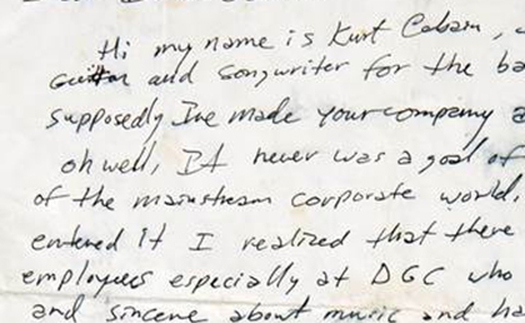 Hi my name is Kurt Cobain,
and songwriter for the ba
supposedly Ive made your company a
oh well, It never was a goal of
of the mainstream corporate world,
entered it I realized that there
employees especially at DGC who
and sincere about music and ha